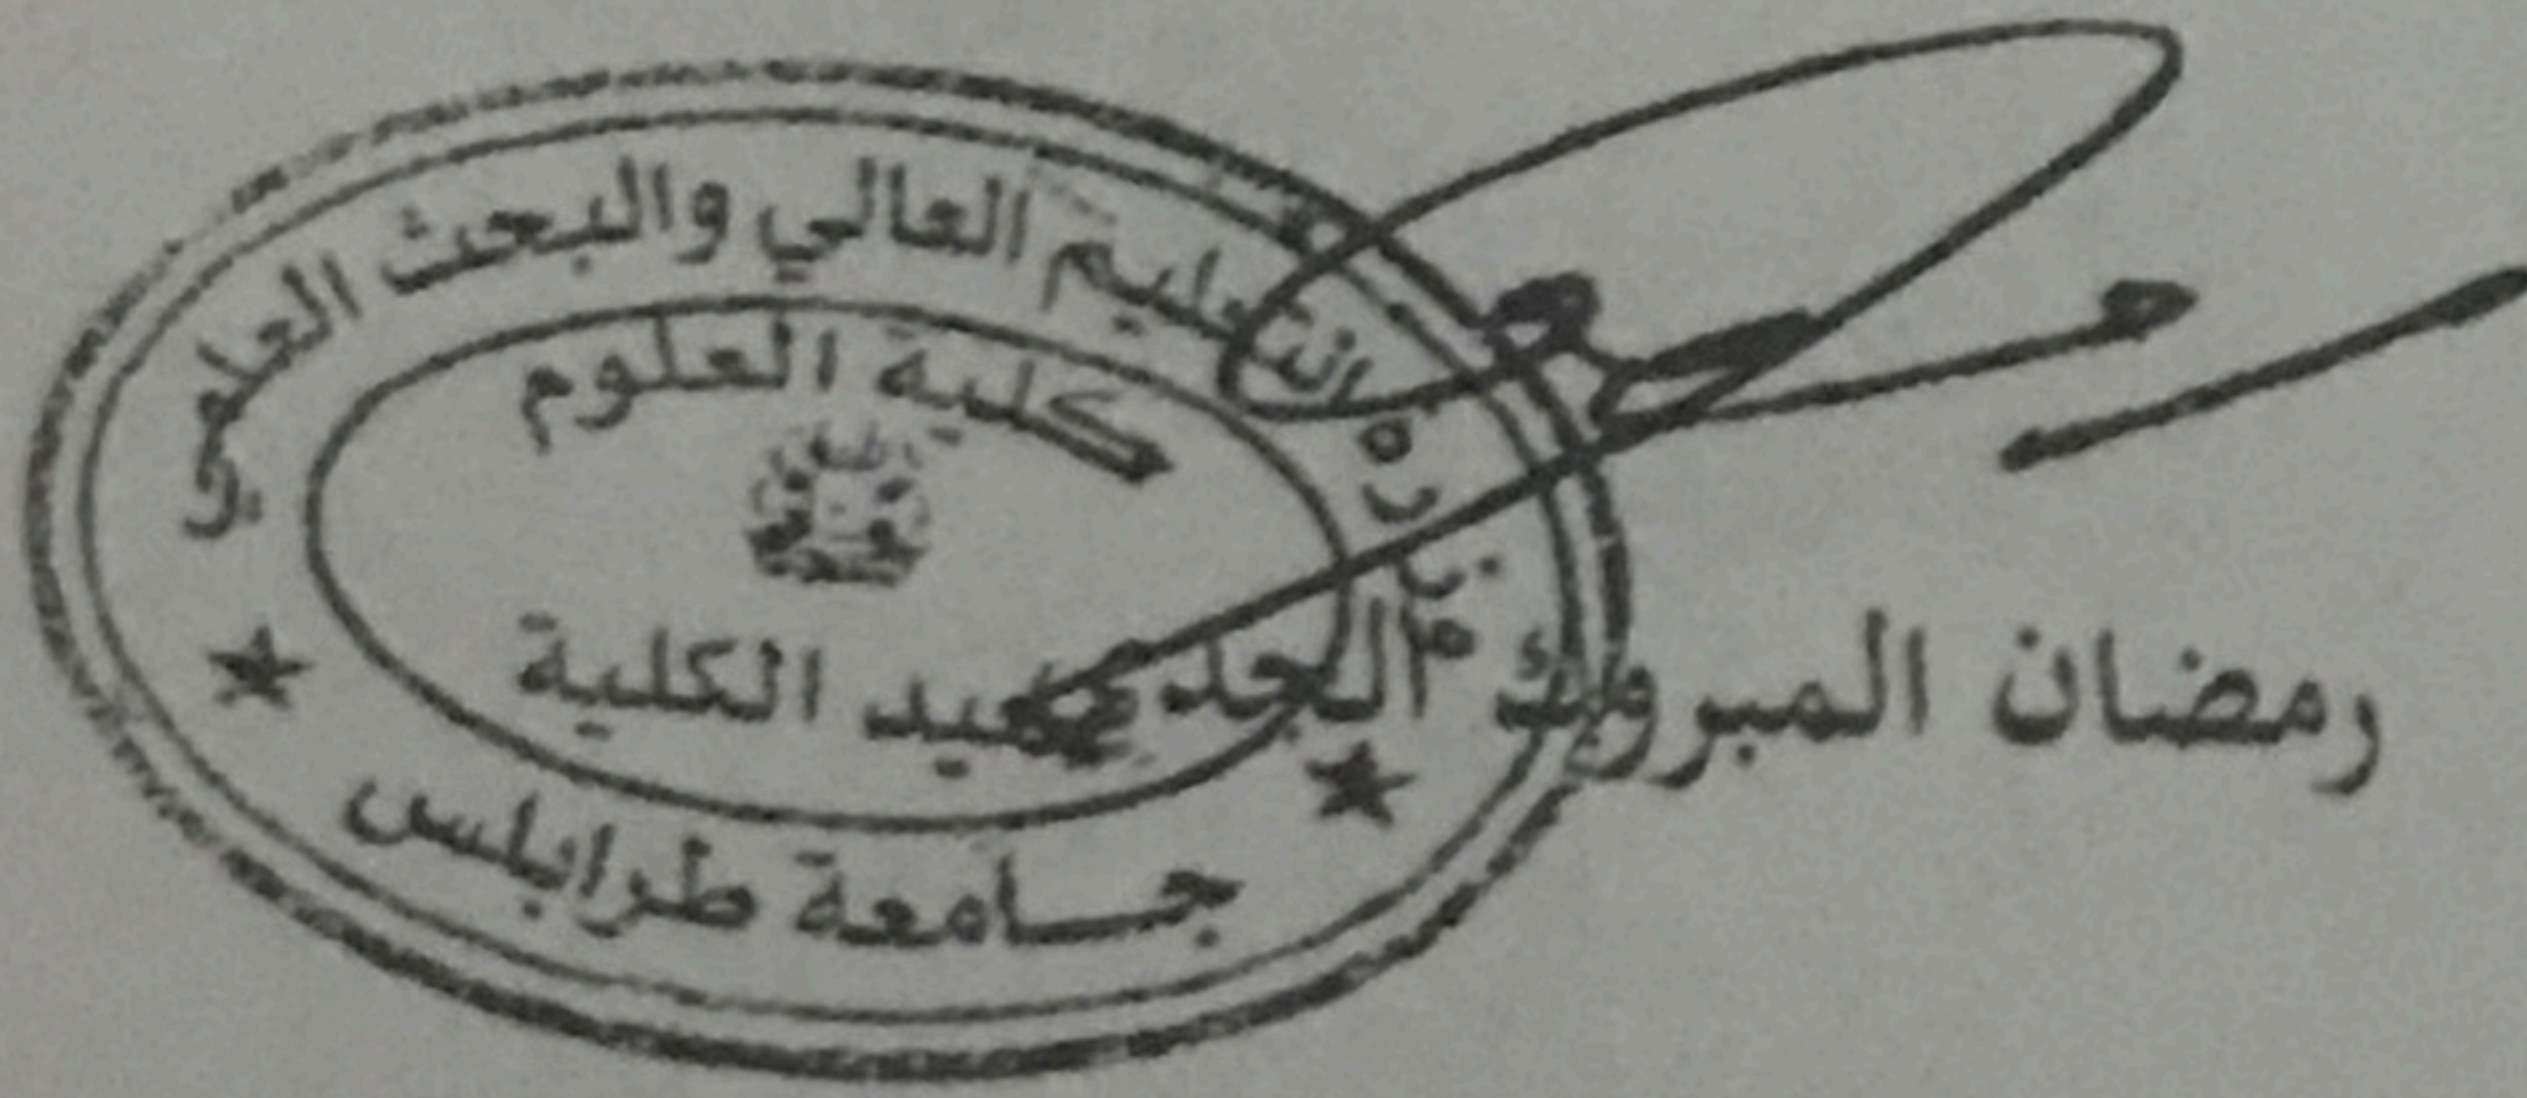 وزارة التعليم العالي والبحث العلمي
كلية العلوم
عميد الكلية
جـامعة طرابلس
رمضان المبروك